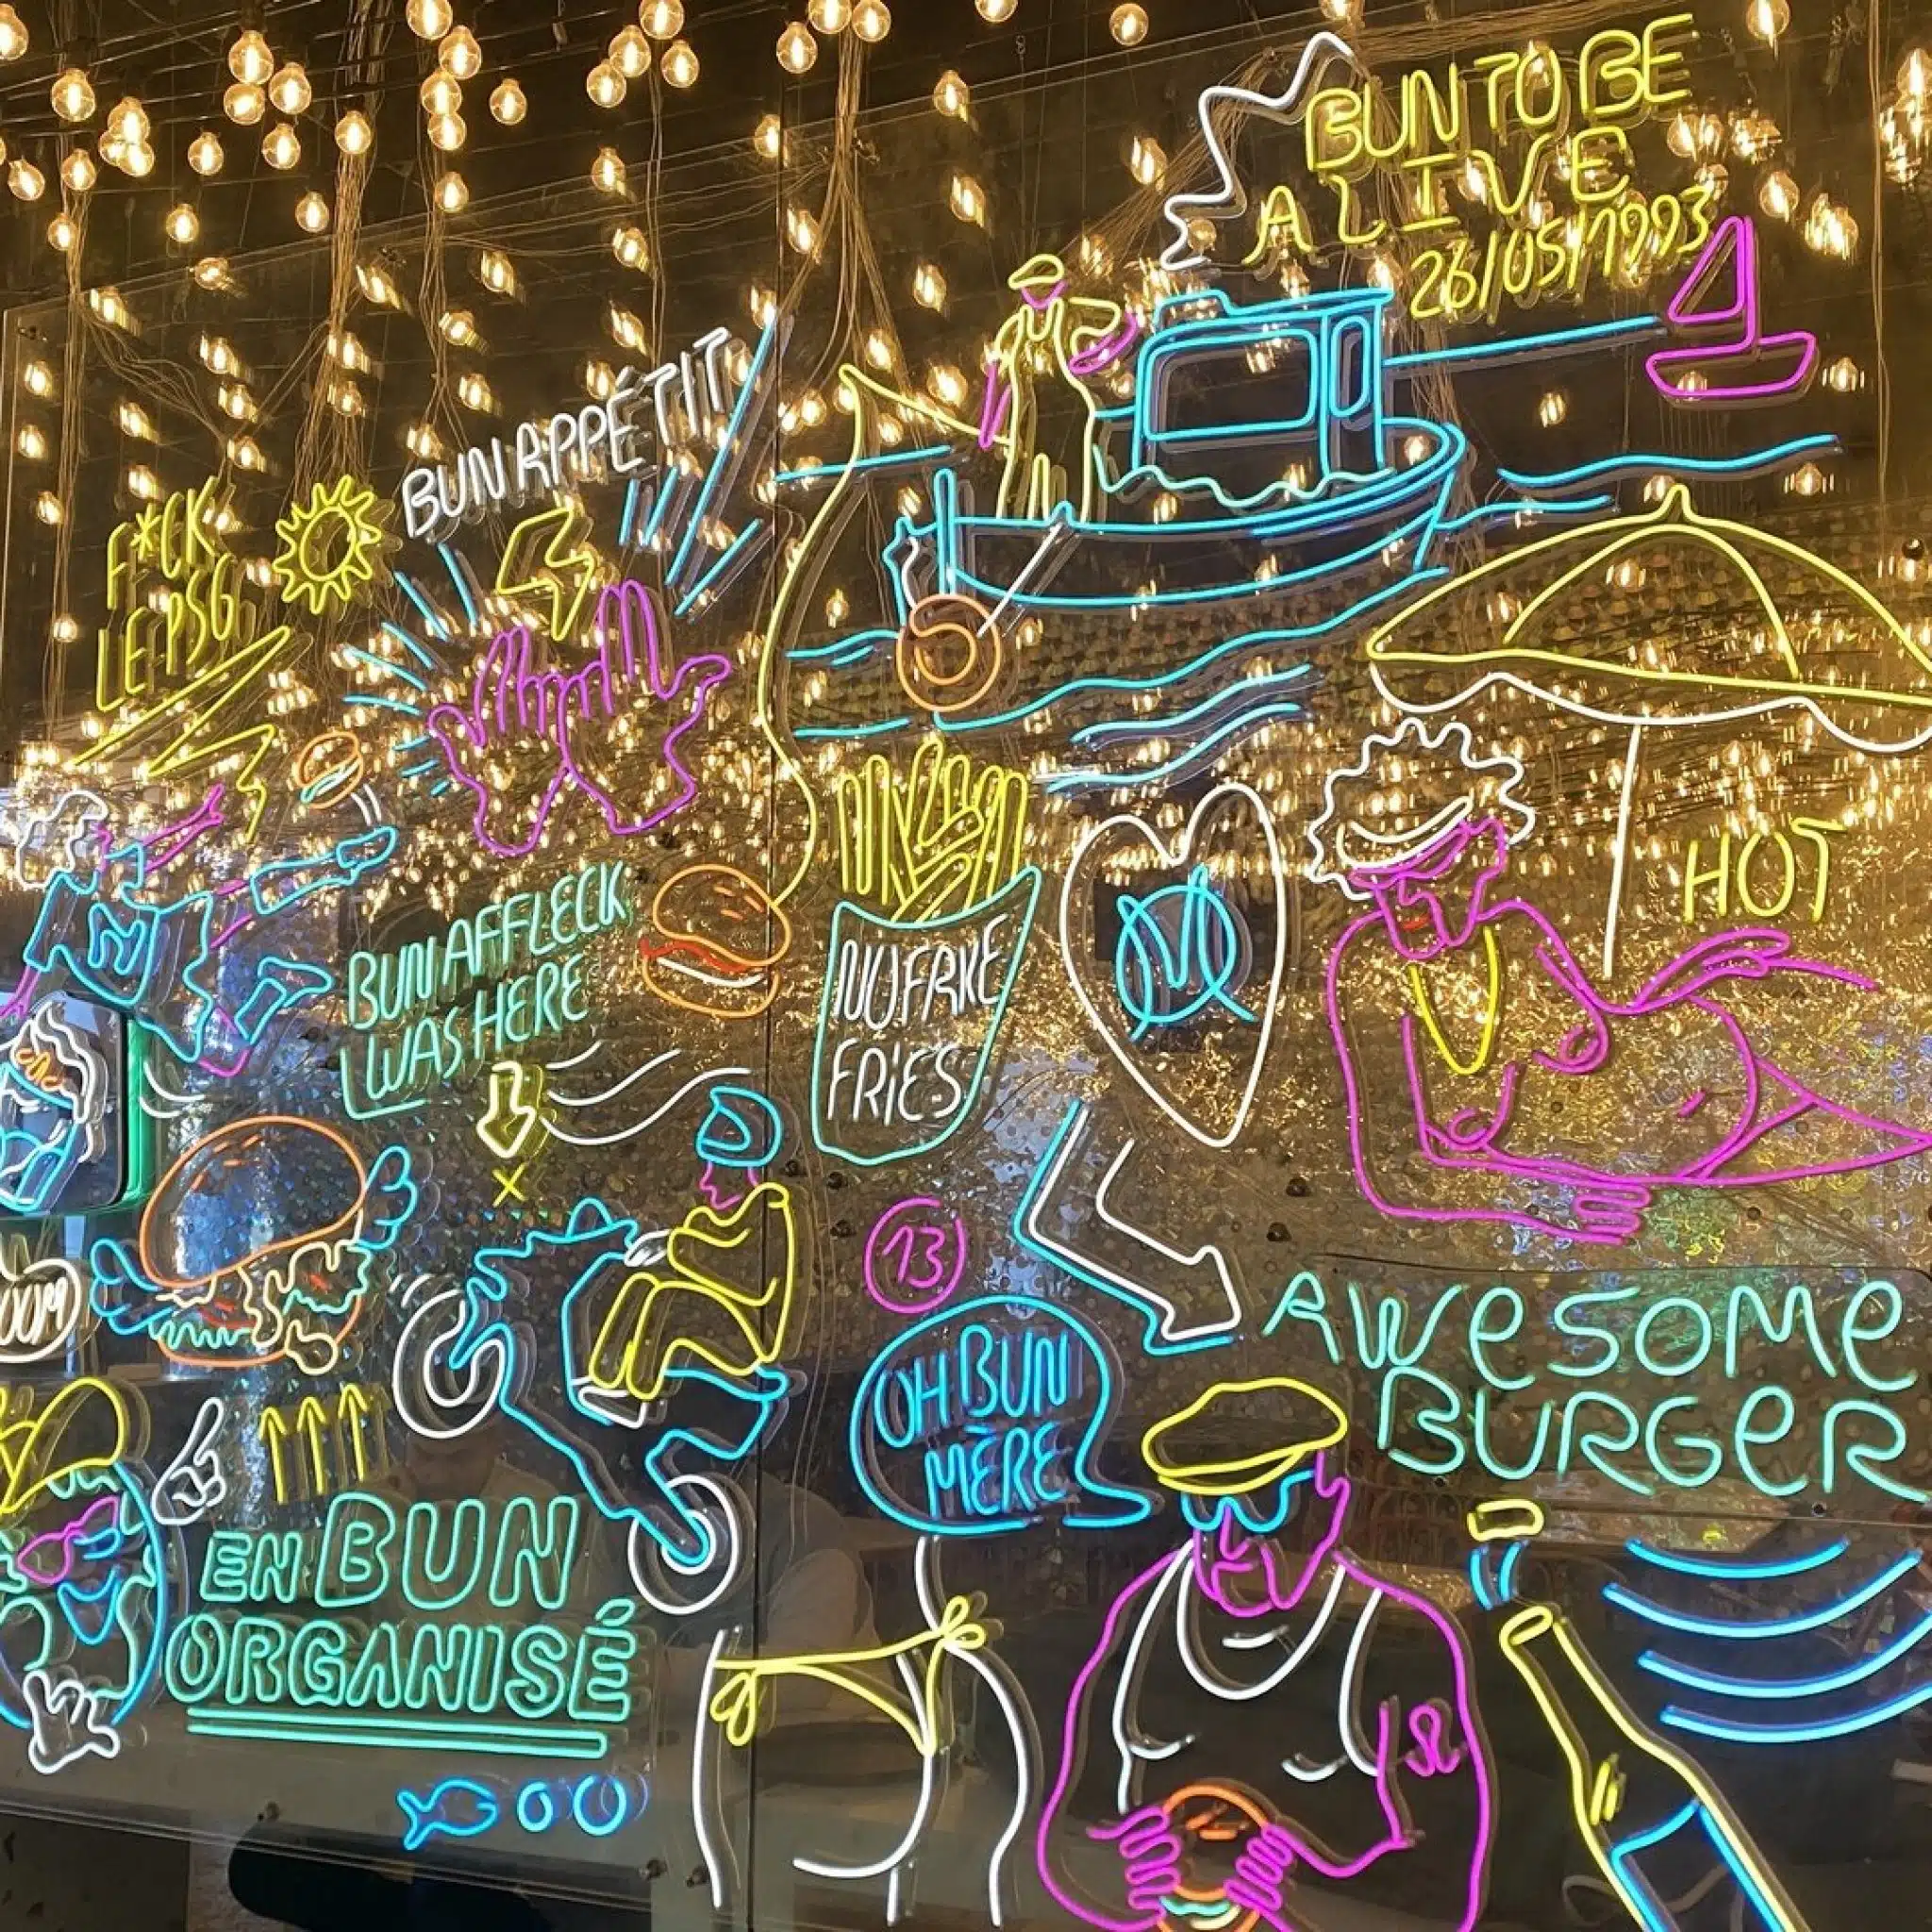 BUN TO BE
ALIVE
26/05/1993
BUN APPÉTIT
F*CK
LE PSG
HOT
BUN AFFLECK
WAS HERE
NO FAKE
FRIES
M
13
OH BUN
MÈRE
AWESOME
BURGER
EN BUN
ORGANISÉ